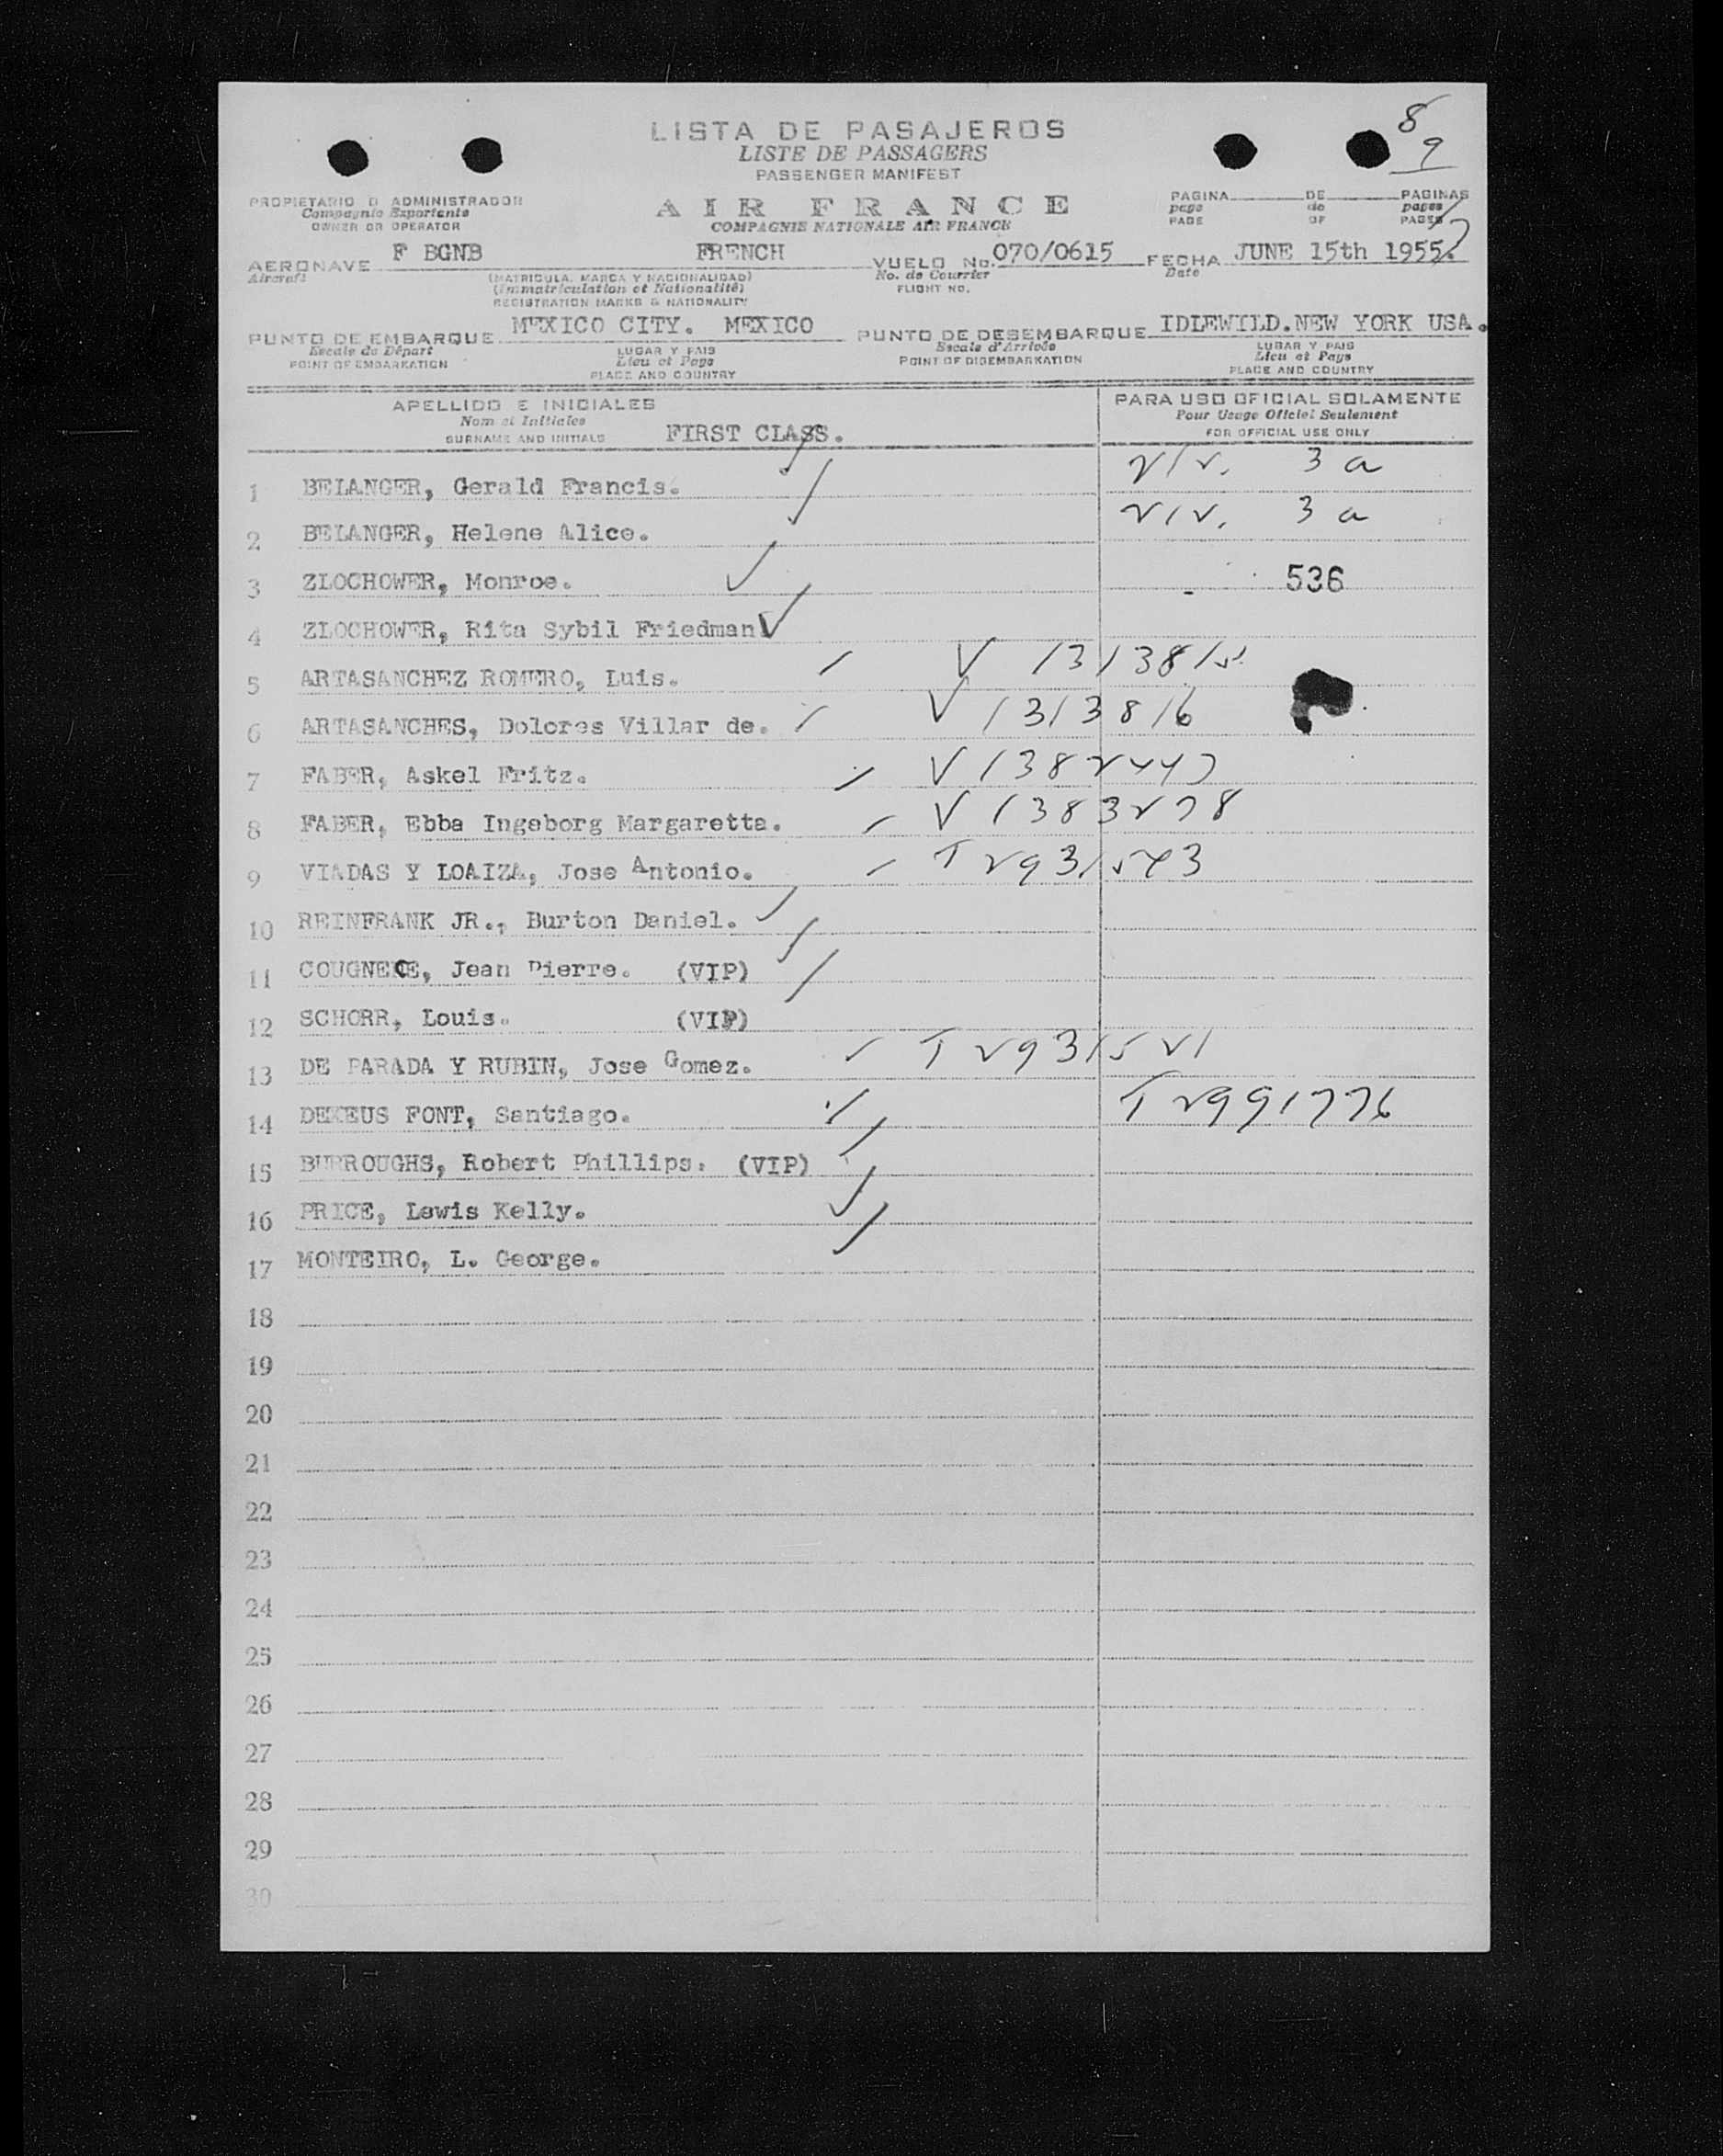 8
9
LISTA DE PASAJEROS
LISTE DE PASSAGERS
PASSENGER MANIFEST
PROPIETARIO O ADMINISTRADOR
Compagnie Exportante
OWNER OR OPERATOR
AIR FRANCE
COMPAGNIE NATIONALE AIR FRANCE
PAGINA DE PAGINAS
page de pages
PAGE OF PAGES
AERONAVE F BGNB FRENCH VUELO No. 070/0615 FECHA JUNE 15th 1955.
Aircraft (MATRICULA, MARCA Y NACIONALIDAD) No. de Courrier Date
(Immatriculation et Nationalité) FLIGHT NO.
REGISTRATION MARKS & NATIONALITY
PUNTO DE EMBARQUE MEXICO CITY. MEXICO PUNTO DE DESEMBARQUE IDLEWILD.NEW YORK USA.
Escale de Départ LUGAR Y PAIS Escale d'Arrivée LUGAR Y PAIS
POINT OF EMBARKATION Lieu et Pays POINT OF DISEMBARKATION Lieu et Pays
PLACE AND COUNTRY PLACE AND COUNTRY
APELLIDO E INICIALES PARA USO OFICIAL SOLAMENTE
Nom et Initiales Pour Usage Officiel Seulement
SURNAME AND INITIALS FIRST CLASS. FOR OFFICIAL USE ONLY
1 BELANGER, Gerald Francis. 3 a
2 BELANGER, Helene Alice. 3 a
3 ZLOCHOWER, Monroe. 536
4 ZLOCHOWER, Rita Sybil Friedman
5 ARTASANCHEZ ROMERO, Luis. V 1313815
6 ARTASANCHES, Dolores Villar de. V 1313816
7 FABER, Askel Fritz. V 1382447
8 FABER, Ebba Ingeborg Margaretta. V 1383278
9 VIADAS Y LOAIZA, Jose Antonio. T 2931543
10 REINFRANK JR., Burton Daniel.
11 COUGNECE, Jean Pierre. (VIP)
12 SCHORR, Louis. (VIP)
13 DE PARADA Y RUBIN, Jose Gomez. T 2931521
14 DEXEUS FONT, Santiago. T 2991776
15 BURROUGHS, Robert Phillips. (VIP)
16 PRICE, Lewis Kelly.
17 MONTEIRO, L. George.
18
19
20
21
22
23
24
25
26
27
28
29
30